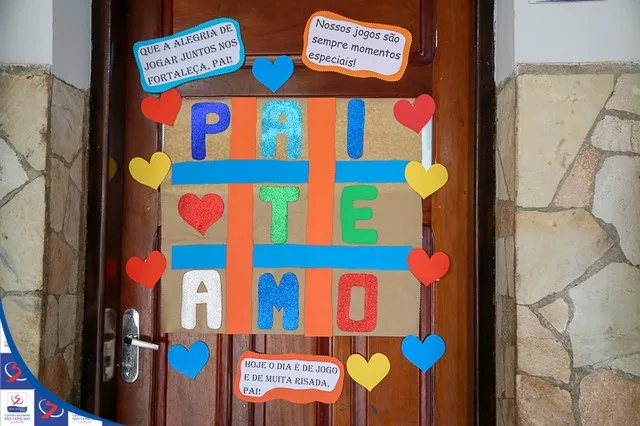 QUE A ALEGRIA DE
JOGAR JUNTOS NOS
FORTALEÇA, PAI!
Nossos jogos são
sempre momentos
especiais!
PAI
TE
AMO
HOJE O DIA É DE JOGO
E DE MUITA RISADA,
PAI!